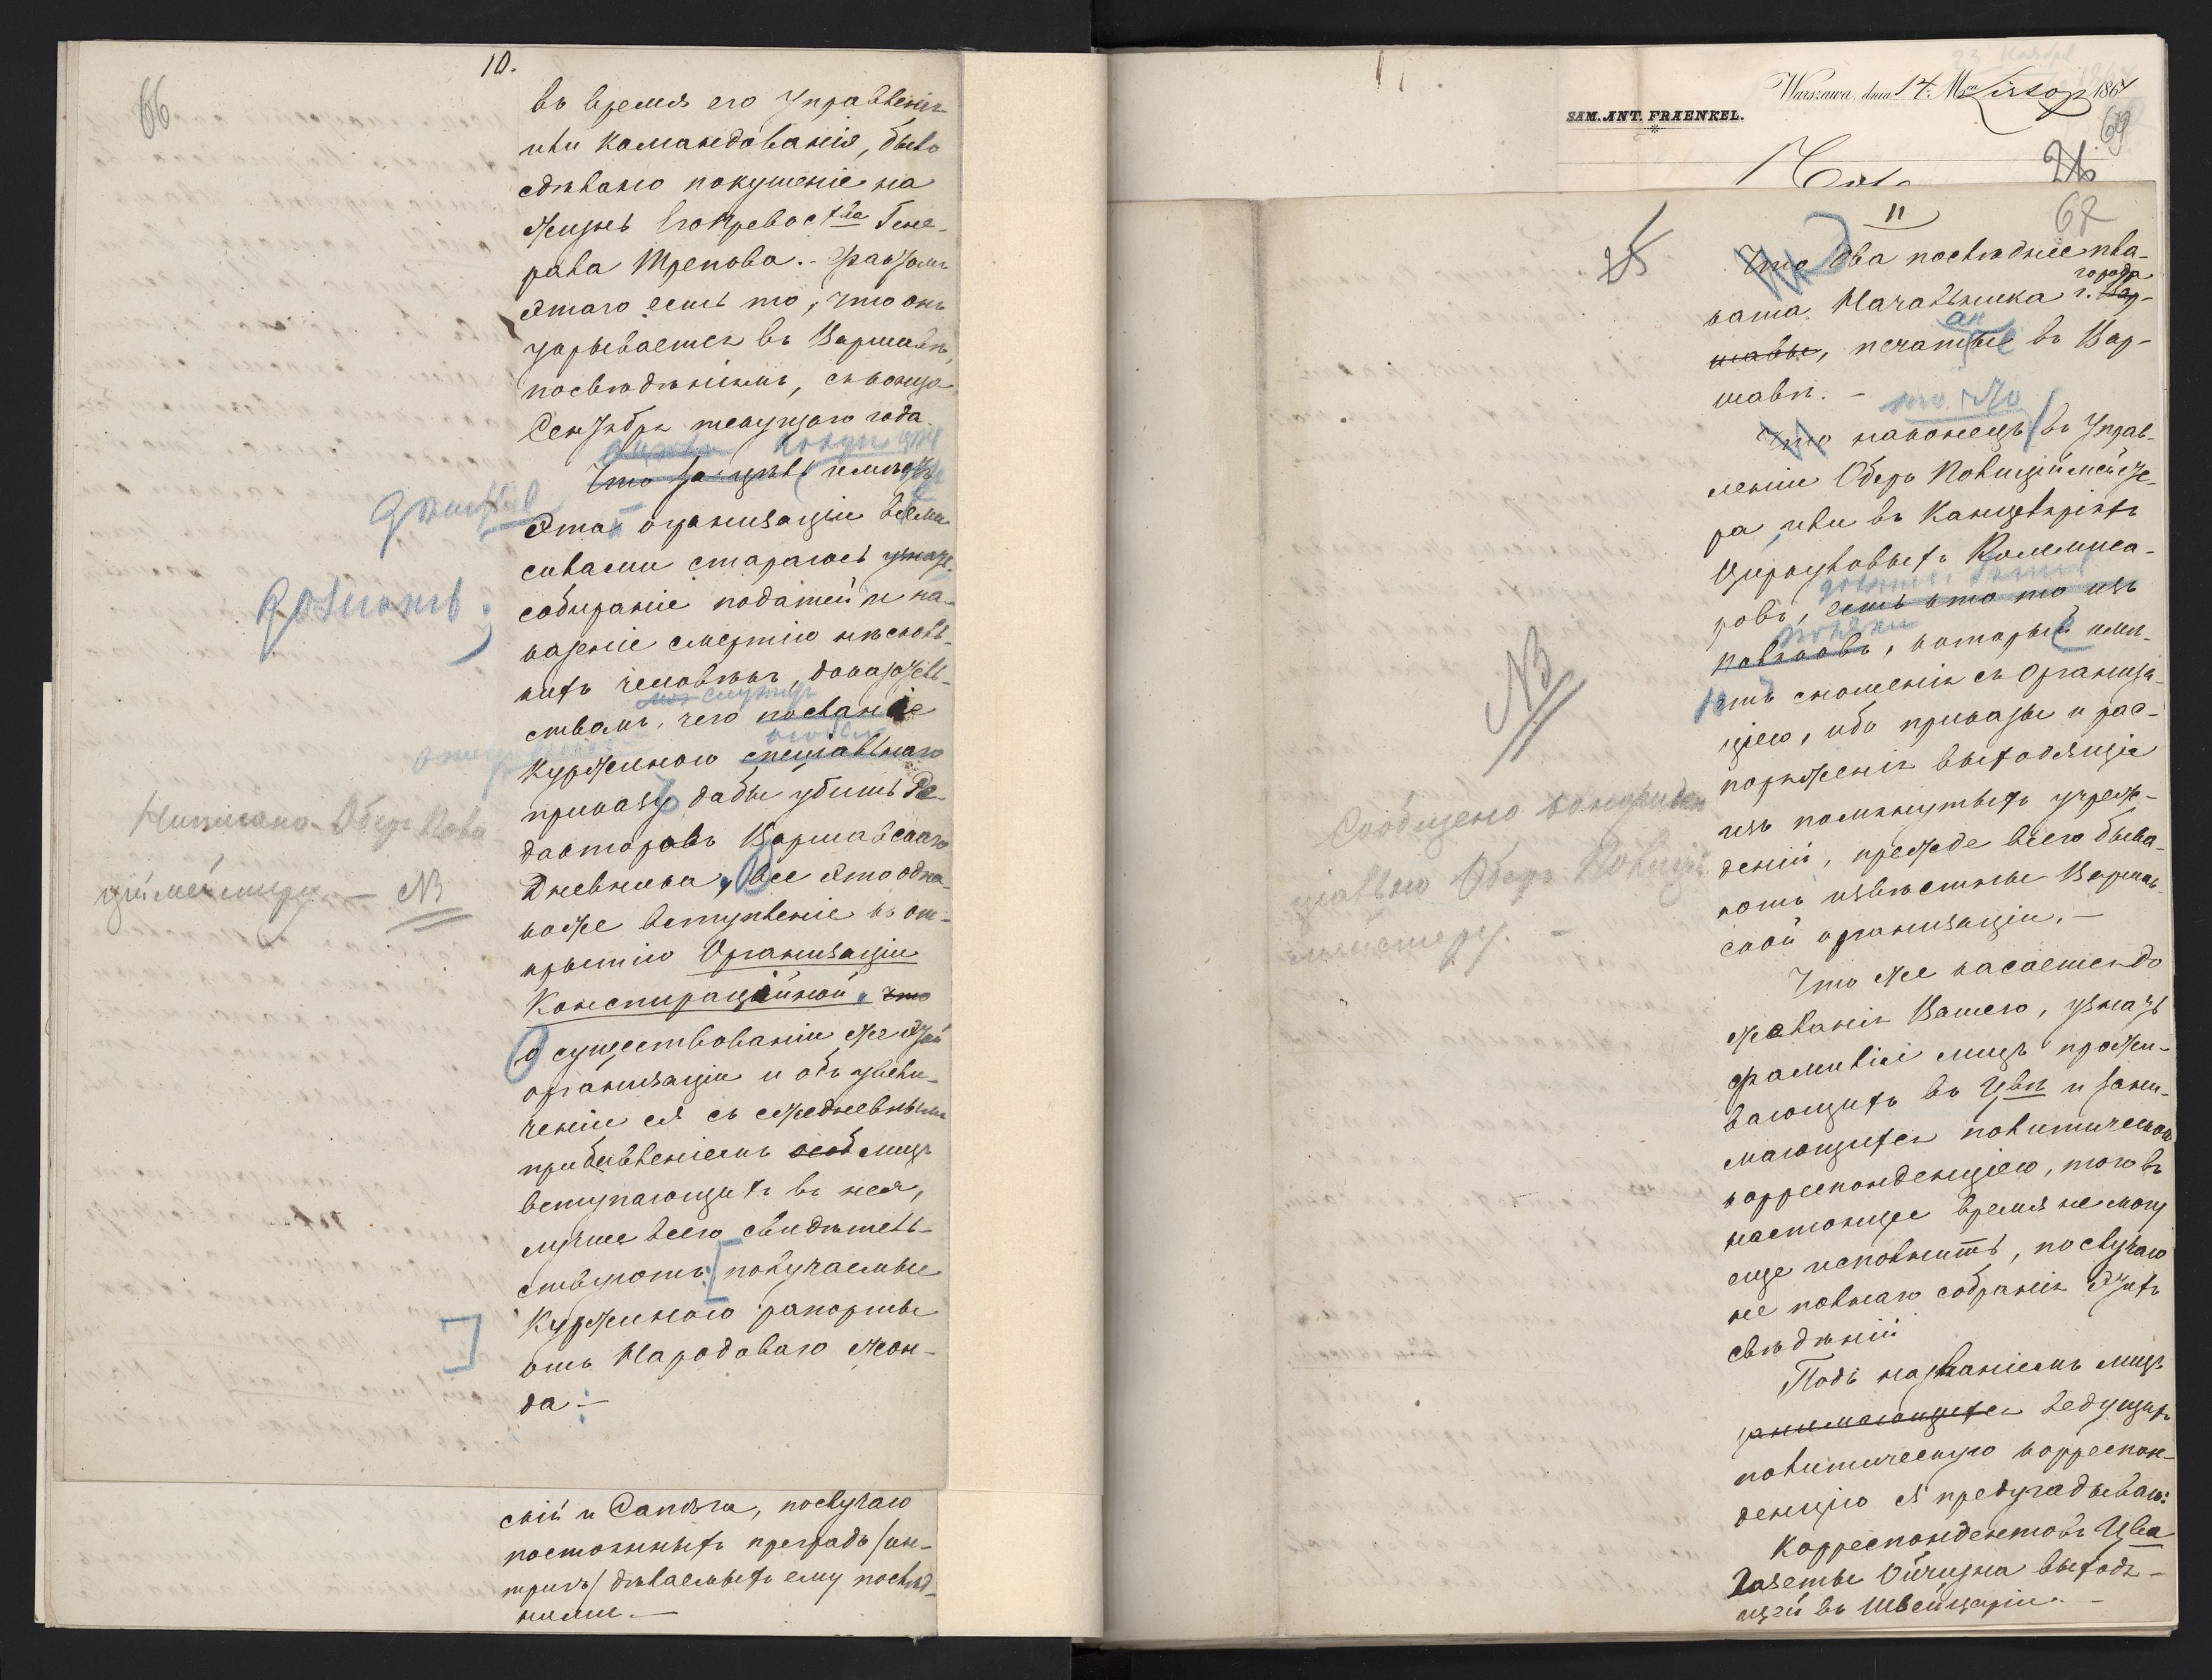 66
10.
въ время его Управленія
или командованія, было
сдѣлано покушеніе на
жизнь Его Превос-тва Гене-
рала Трепова. -
этаго есть то, что онъ
укрывается въ Варшавѣ,
посвѣдѣніямъ, съ конца
Сентября текущаго года.
Что за цѣль имѣетъ
Эта организаціи всѣми
силами стараюсь узнать.
собираніе податей и на-
казаніе смертію нѣсколь-
кихъ человѣкъ, доказатель-
ствомъ, чего посланіе
служитъ
Куржиною спеціальнаго
приказу дабы убить Ре-
дакторовъ Варшавскаго
Дневника, все это одна-
коже вступленіе къ от-
крытію Организаціи
Конспираційной, что
о существованіи же этой
организаціи и объ увели-
ченіи ея съ ежедневнымъ
прибавленіемъ особ лицъ
вступающихъ въ нея,
лучше всего свидѣтель-
ствуютъ: получаемые
Куржиною рапорты
отъ Народоваго Жон-
да. -
Написано Оберъ Поли-
ційместеру. - NB
скій и Сапѣга, послучаю
постоянныхъ преградъ /ин-
тригъ/ дѣлаемыхъ ему послѣд-
ними. -
Warszawa, dnia 14. M Listop 1864
SAM. ANT. FRAENKEL.
69
26
68
25
11
Что два послѣдніе пла-
города
ката Начальника г. Вар-
шавы, печатные въ Вар-
шавѣ. -
Что наконецъ въ Управ-
леніи Оберъ Полиційместе-
ра, или въ Канцеляріяхъ
Циркуловыхъ Коммиса-
ровъ, есть кто то изъ
поляковъ, которые имѣ-
ютъ сношенія съ Организа-
ціею, ибо приказы и рас-
поряженія выходящія
изъ помянутыхъ учреж-
деній, прежде всего быва-
ютъ извѣстны Варшав-
ской организаціи. -
NB
Сообщено конфиден
ціально Оберъ Полицій
мейстеру. -
Что же касается до
желанія Вашего, узнать
фамиліи лицъ прожи-
вающихъ въ Цвѣ и зани-
мающихся политической
корреспонденціею, того въ
настоящее время не могу
еще исполнить, послучаю
не полнаго собранія этихъ
свѣдѣній
Подъ названіемъ лицъ
занимающихся ведущихъ
политическую корреспон-
денцію я предугадываю:
Корреспондентовъ Цва
Газеты Ойчизна выходя-
щей въ Швейцаріи. -